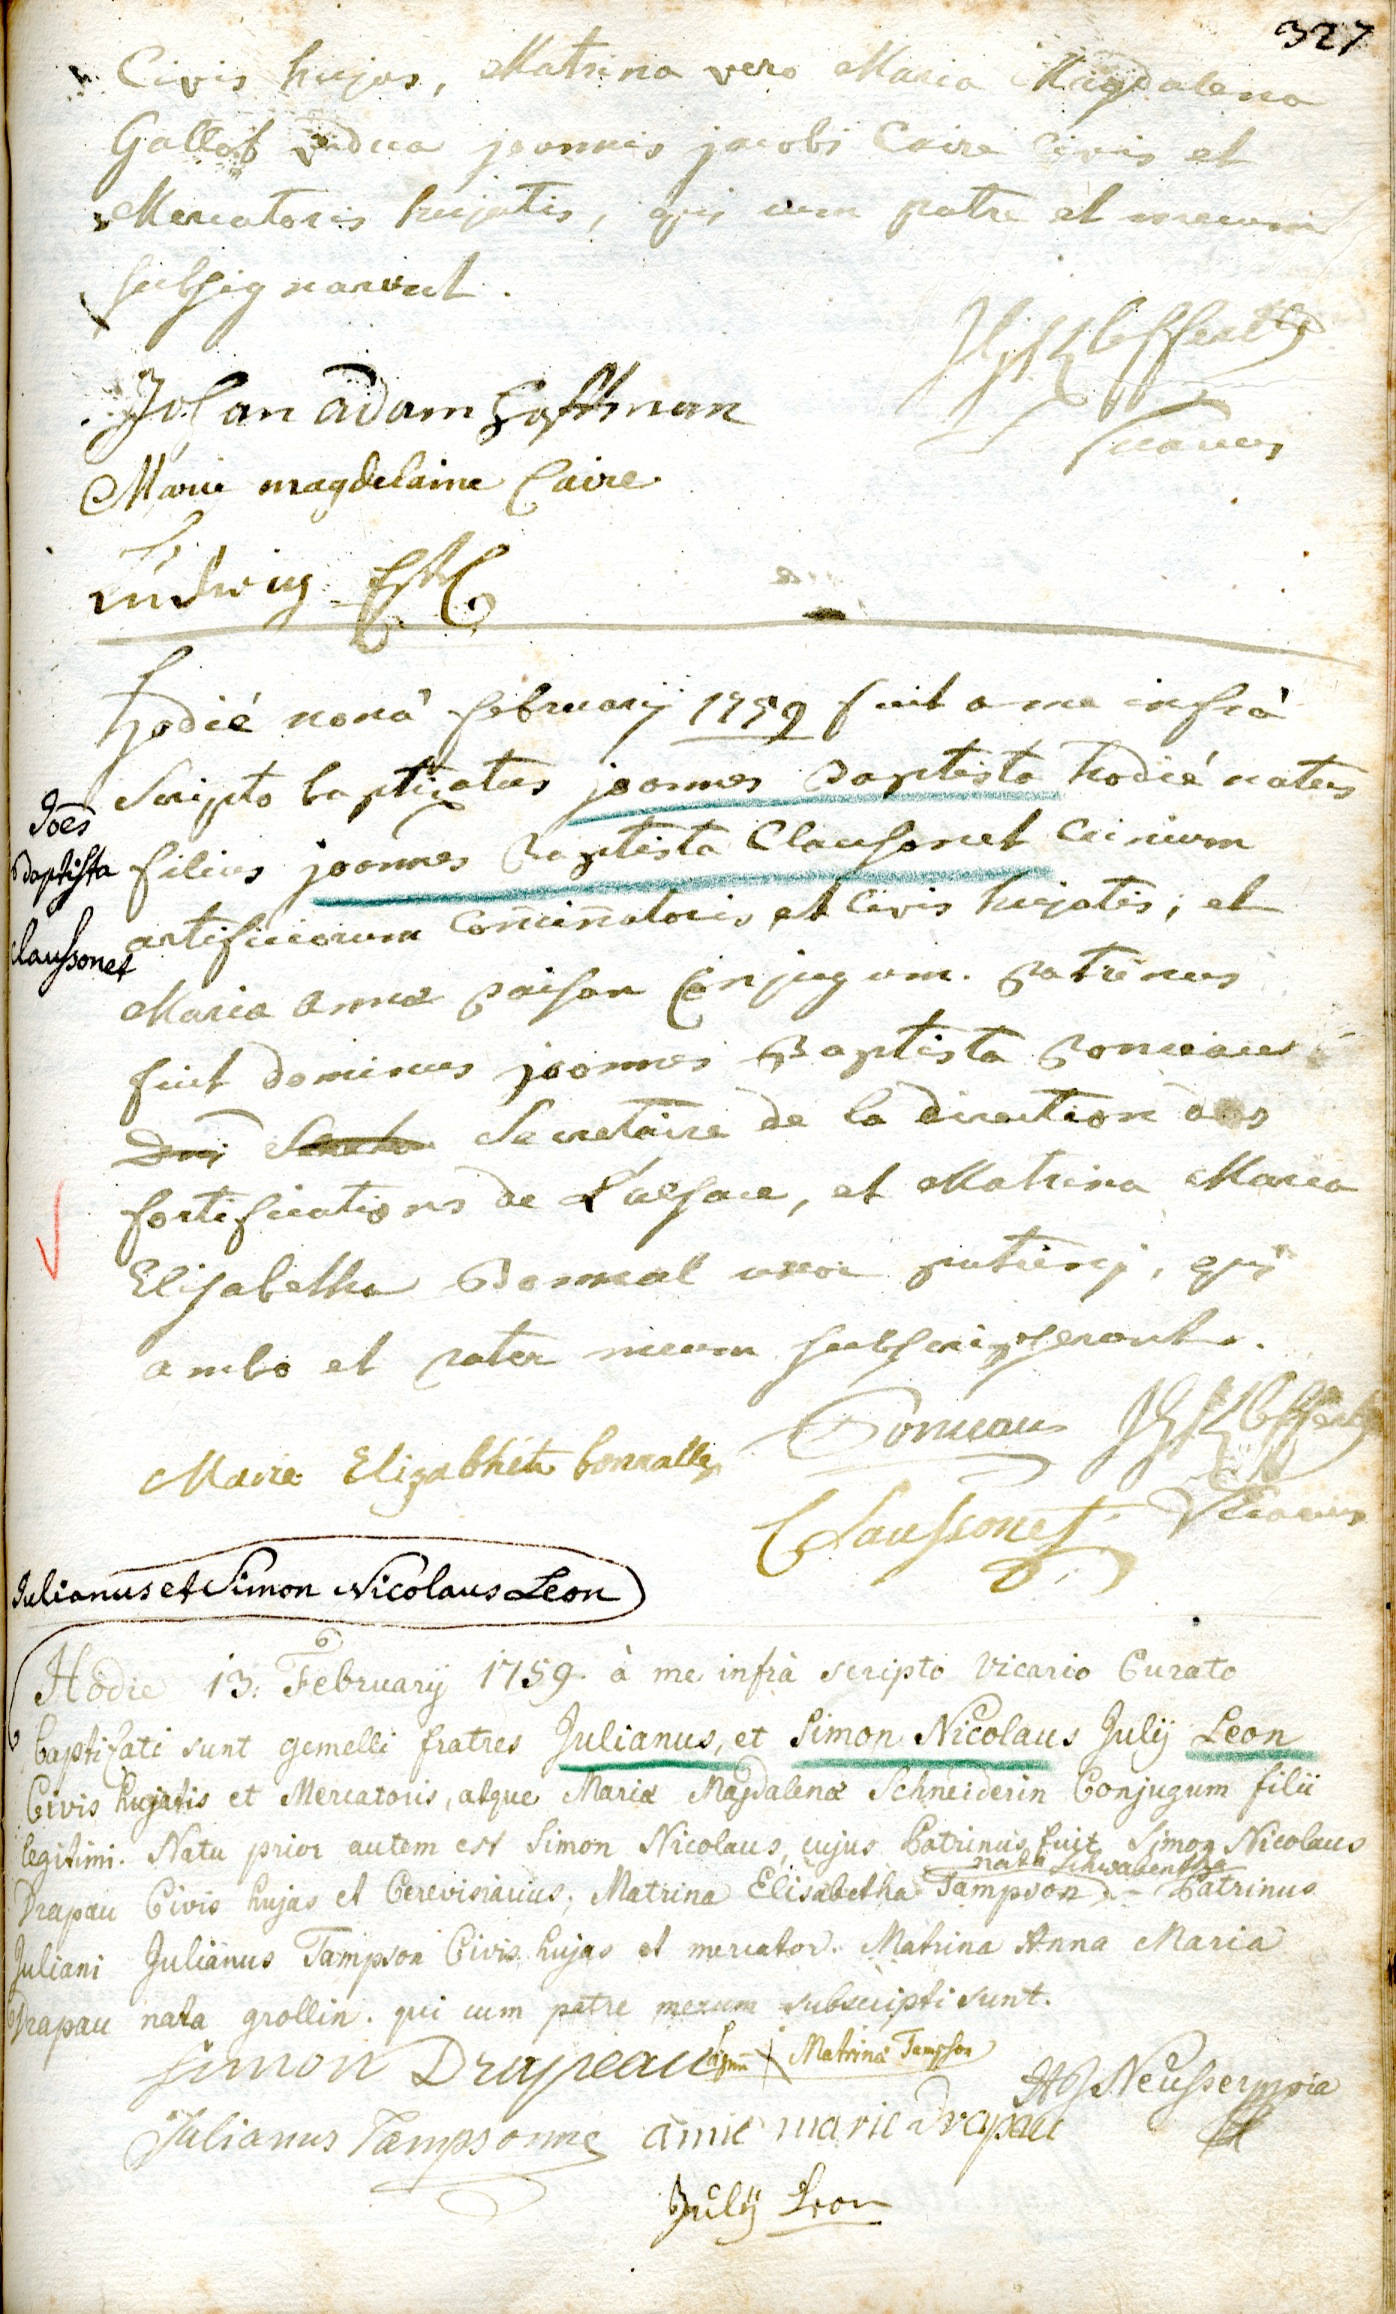 327
Civis hujas, Matrina vero Maria Magdalena
Gallot vidua joannis jacobi Caire Civis et
Mercatoris hujatis, qui cum patre et mecum
subsignarunt.
Johan adam Hoffman
Vicarius
Marie magdelaine Caire
Ludwig
hodié nonâ february 1759 fuit a me infrà
Scripto baptizatus joannes Baptista hodié natus
Joes
Baptista
Claussonet
filius joannes Baptista Clausonet
artificiorum et Civis hujatis, et
Maria anna Conjugum. Patrinus
fuit dominus joannes Baptista Ponceau
Dni Secretaire de la direction des
fortifications de L'alsace, et Matrina Maria
Elisabetha Bonnal uxor patrinj, qui
ambo et pater mecum subscripserunt.
Ponceau
Marie Elizabhét bonnalle
Claussonet
Vicarius
Julianus et Simon Nicolaus Leon
Hodie 13. February 1759. à me infrà scripto Vicario Curato
baptizati sunt gemelli fratres Julianus, et Simon Nicolaus Julÿ Leon
Civis hujatis et Mercatoris, atque Mariæ Magdalenæ Schneiderin Conjugum filii
legitimi. Natu prior autem est Simon Nicolaus, cujus Patrinus fuit Simon Nicolaus
nata
Drapau Civis hujas et Cerevisiarius, Matrina Elisabetha Tampson. - Patrinus
Juliani Julianus Tampson Civis hujas et mercator. Matrina Anna Maria
Drapau nata grollin. qui cum patre mecum subscripti sunt.
Simon Drapeau Signũ Matrinæ Tampson
Julianus Tampsonne anne marie Drapau
Julÿ Leon